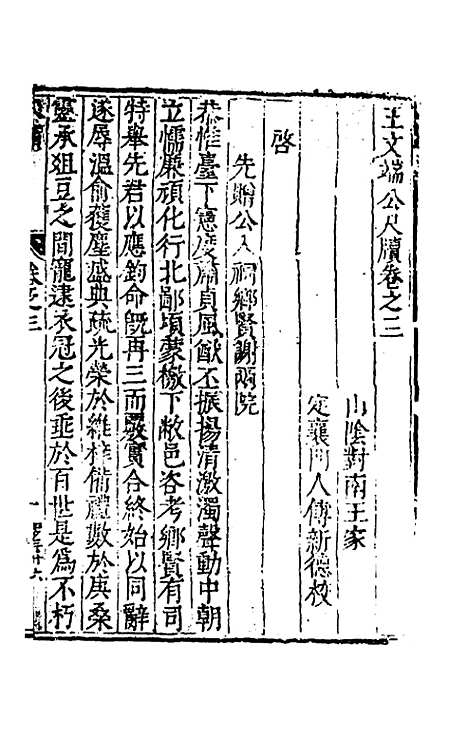 王文端公尺牘卷之三
山陰對南王家
定襄門人傅新德校
啓
先贈公入祠鄉賢謝兩院
恭惟臺下憲度肅貞風猷丕振揚清激濁聲動中朝
立懦廉頑化行北鄙頃蒙檄下敝邑咨考鄉賢有司
特舉先君以應鈞命既再三而覈實合終始以同辭
遂辱溫俞獲塵盛典疏光榮於維梓備禮數於庚桑
靈承俎豆之間寵逮衣冠之後垂於百世是爲不朽
卷之三
一